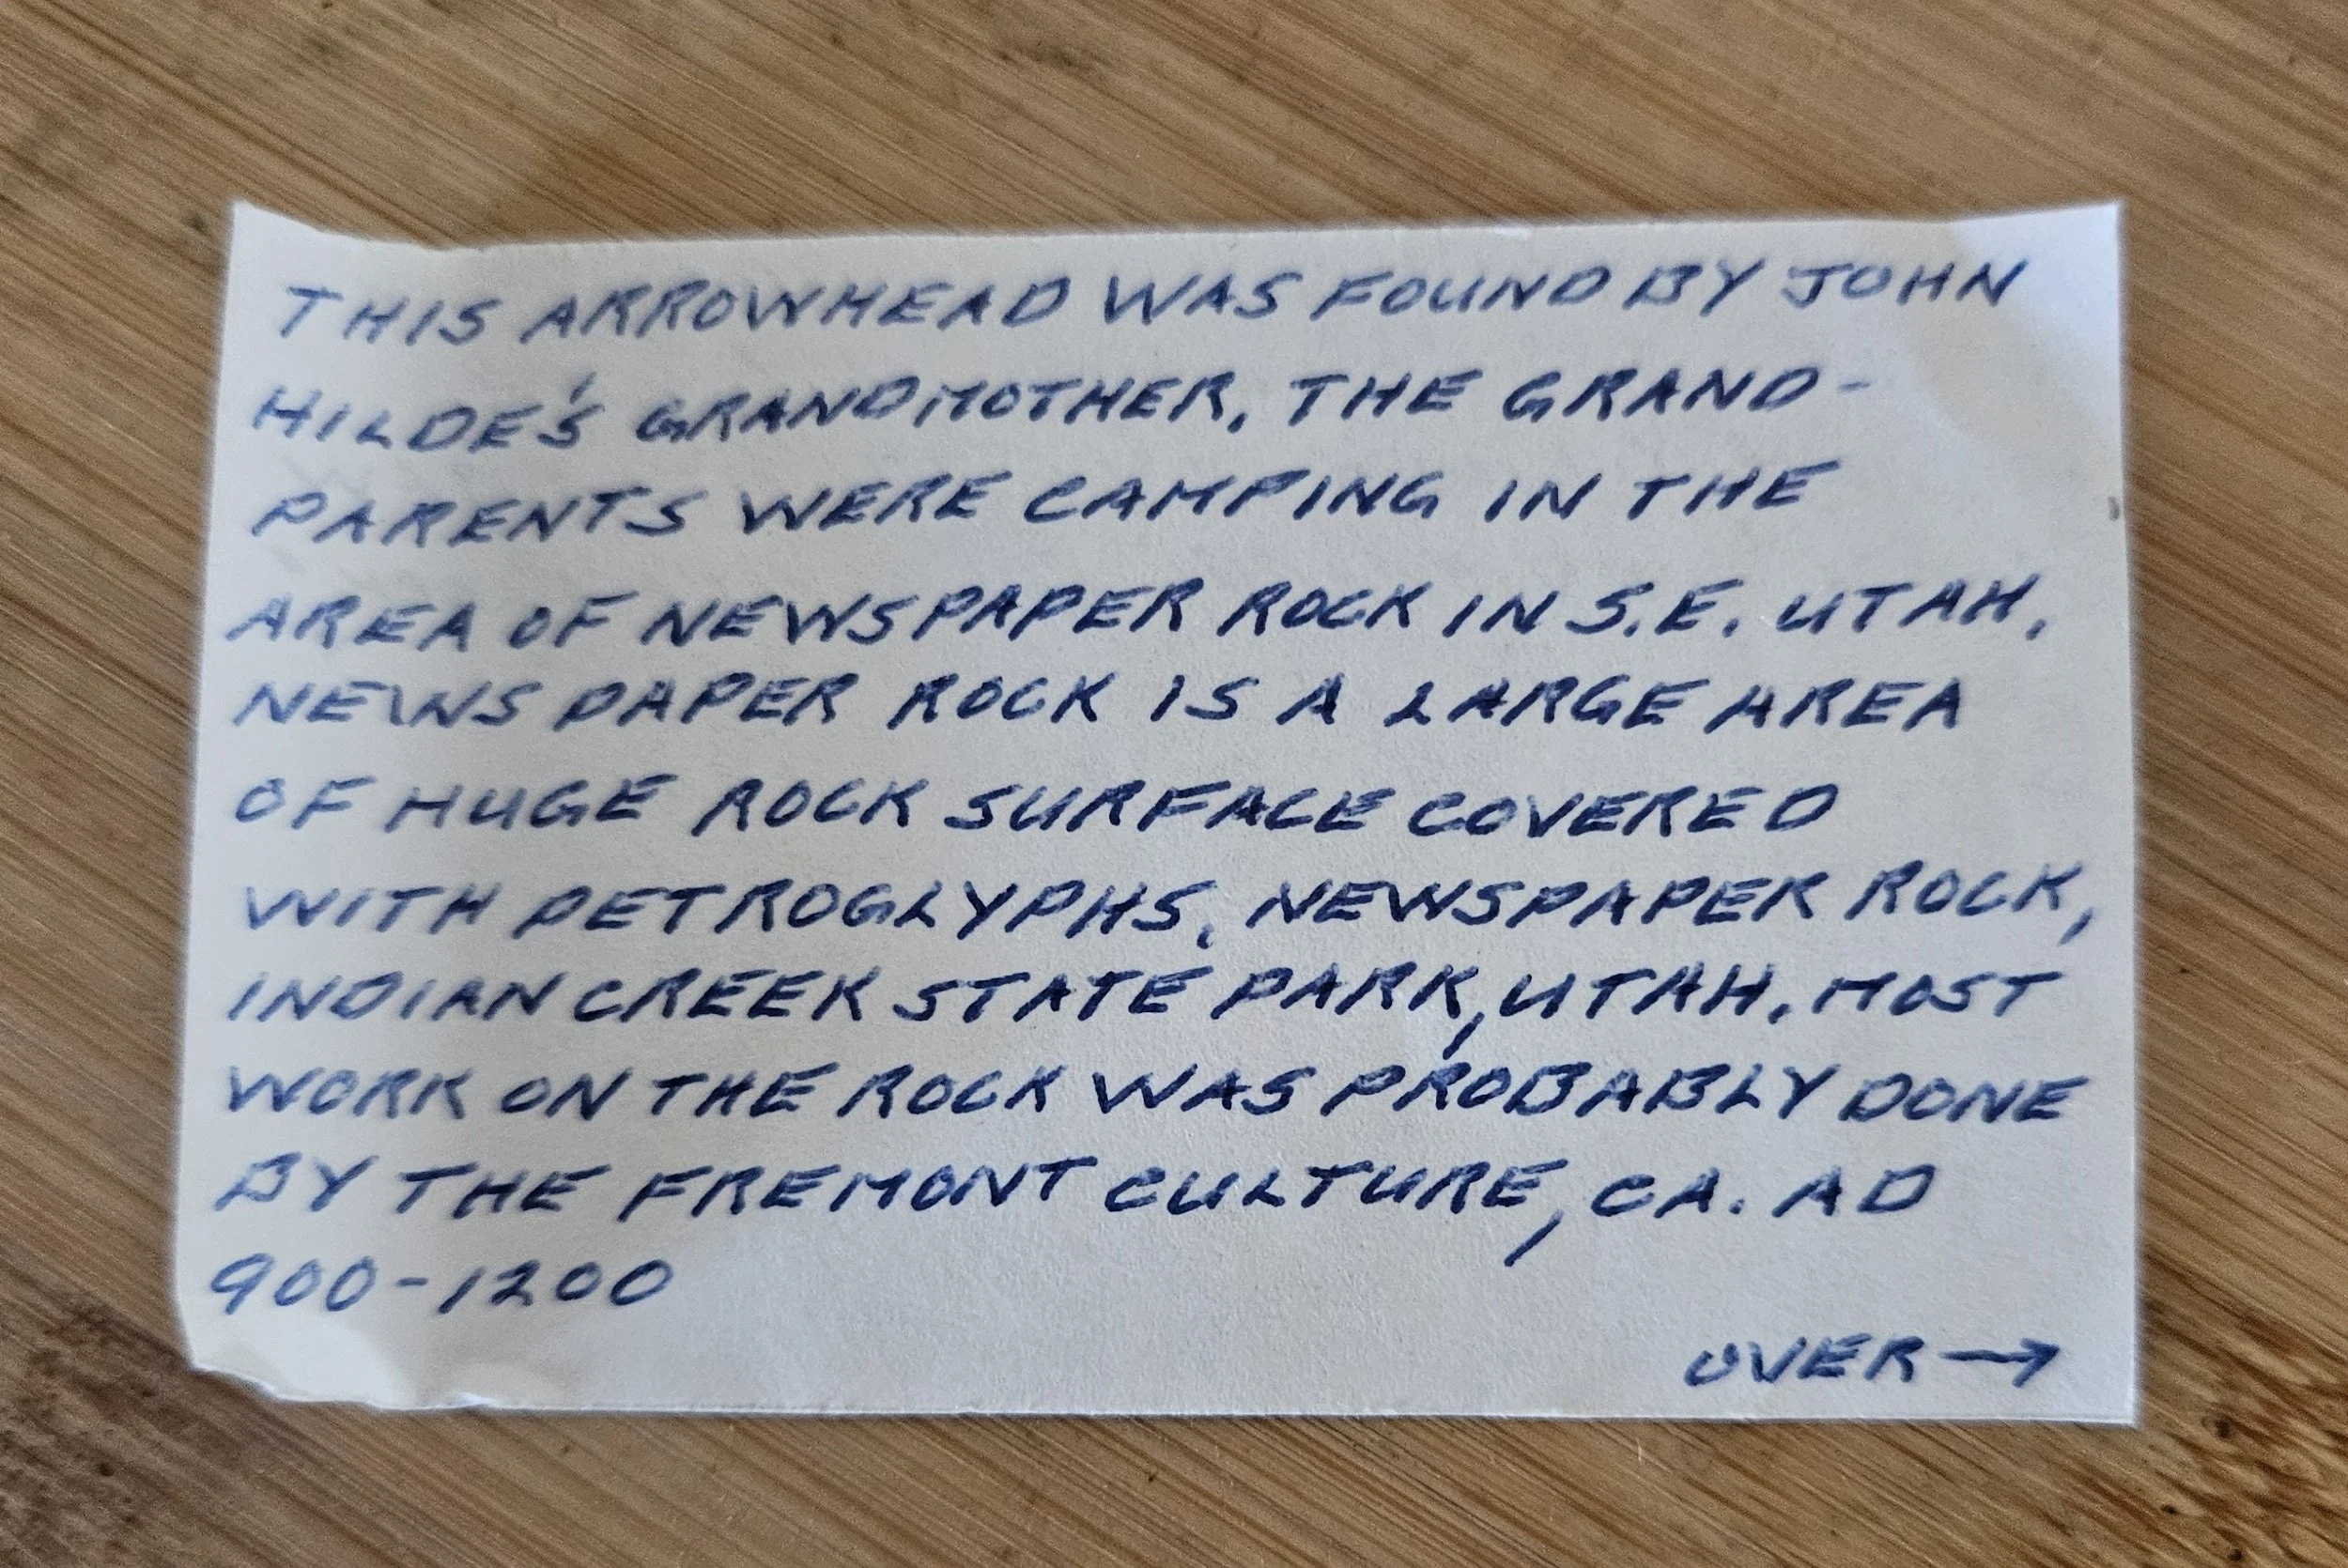 THIS ARROWHEAD WAS FOUND BY JOHN
HILDE'S GRANDMOTHER. THE GRAND-
PARENTS WERE CAMPING IN THE
AREA OF NEWSPAPER ROCK IN S.E. UTAH.
NEWSPAPER ROCK IS A LARGE AREA
OF HUGE ROCK SURFACE COVERED
WITH PETROGLYPHS. NEWSPAPER ROCK,
INDIAN CREEK STATE PARK, UTAH. MOST
WORK ON THE ROCK WAS PROBABLY DONE
BY THE FREMONT CULTURE, CA. AD
900-1200
OVER →